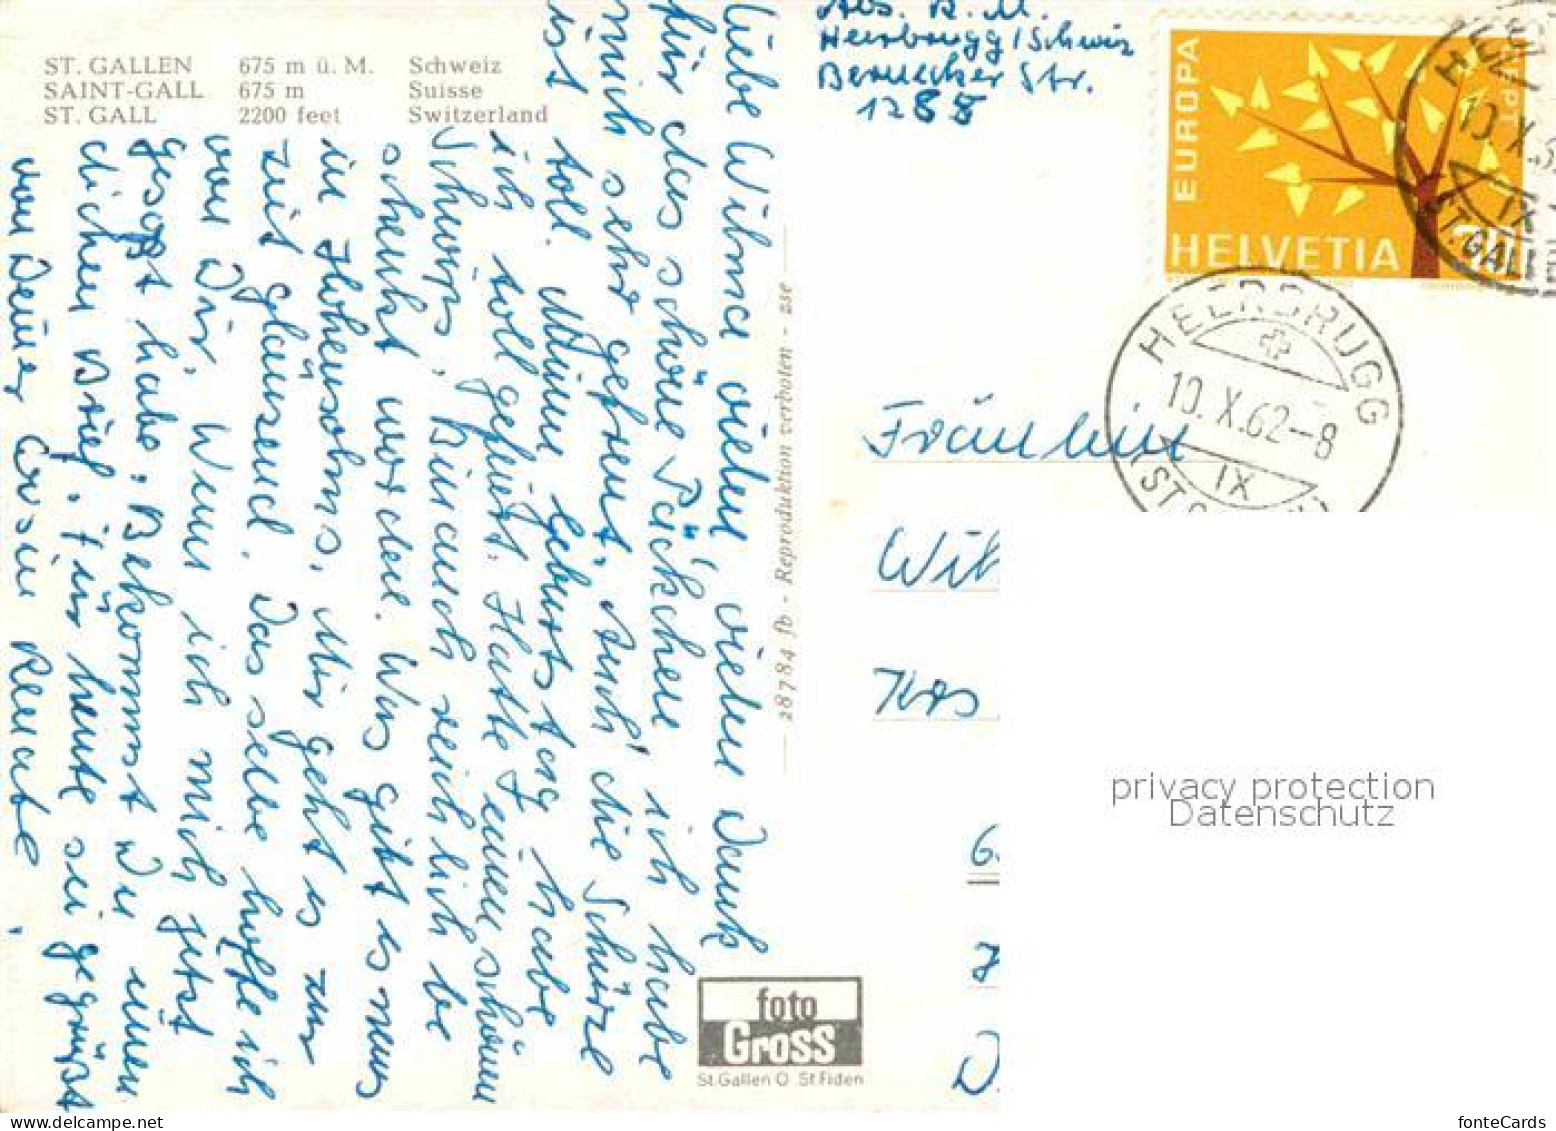 ST. GALLEN 675 m ü. M. Schweiz
SAINT-GALL 675 m Suisse
ST. GALL 2200 feet Switzerland
Liebe Wilma vielen, vielen Dank
für das schöne Päckchen, ich habe
mich sehr gefreut. Auch die Schürze
ist toll. Meinen Geburtstag habe
ich toll gefeiert. Hatte einen schönen
Schwips, Bin auch reichlich be
schenkt worden. Was gibt es neues
in Hohensolms, Mir geht es zur
zeit glänzend. Das selbe hoffe ich
von Dir, Wenn ich mich jetzt
habe, Bekommst Du einen
dicken Brief. Für heute sei gegrüßt
von Deiner Cousine Renate
28784 fb - Reproduktion verboten - sse
foto
Gross
St.Gallen O St.Fiden
Abs. R. M.
Heerbrugg / Schweiz
Bernecker Str.
1288
EUROPA
HELVETIA
HEERBRUGG
10.X.62-8
IX
ST. GALL
Fräulein
privacy protection
Datenschutz
www.delcampe.net
fonteCards